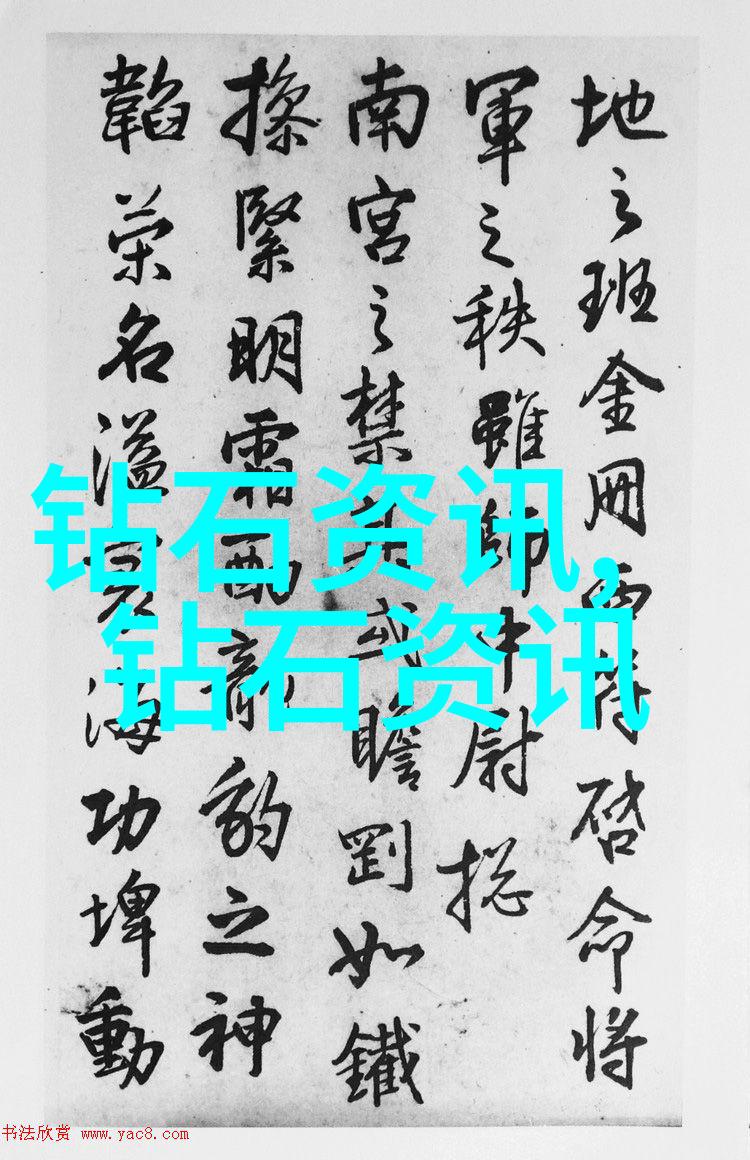 地之班金冊
啓命将
軍之秩雖師中尉揔
南宮之禁
或瞻罰如鐵
操緊明霜
豹之神
韜榮名溢
海功埤動
钻石资讯,
钻石资讯
书法欣赏 www.yac8.com